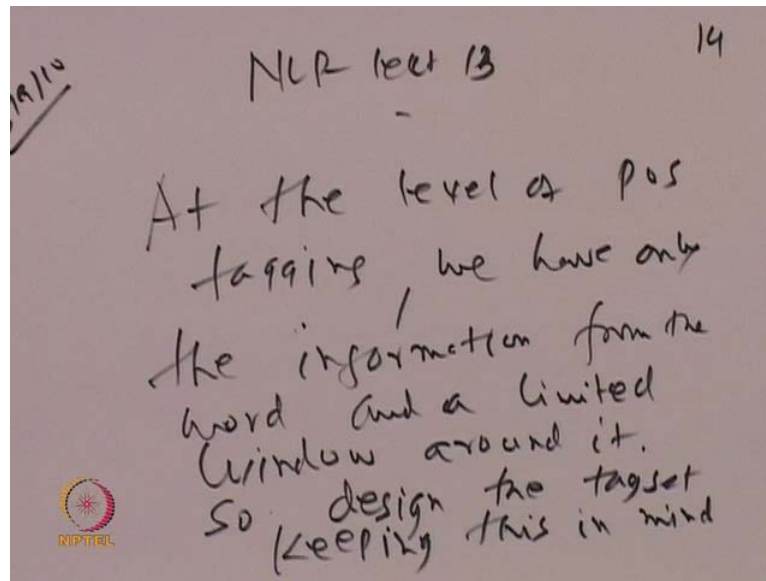 14
NLP lect 13
At the level of POS
tagging, we have only
the information from the
word and a limited
window around it.
So design the tagset
keeping this in mind
NPTEL